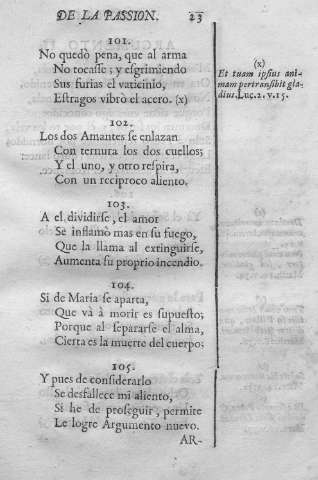 DE LA PASSION. 23
101.
No quedò pena, que al arma
No tocasse; y esgrimiendo
Sus furias el vaticinio,
Estragos vibrò el acero. (x)
(x)
Et tuam ipsius ani-
mam pertransibit gla-
dius. Luc. 2. v. 15.
102.
Los dos Amantes se enlazan
Con ternura los dos cuellos;
Y el uno, y otro respira,
Con un reciproco aliento.
103.
A el dividirse, el amor
Se inflamò mas en su fuego,
Que la llama al extinguirse,
Aumenta su proprio incendio.
104.
Si de Maria se aparta,
Que và à morir es supuesto;
Porque al separarse el alma,
Cierta es la muerte del cuerpo;
105.
Y pues de considerarlo
Se desfallece mi aliento,
Si he de proseguir, permite
Le logre Argumento nuevo.
AR-